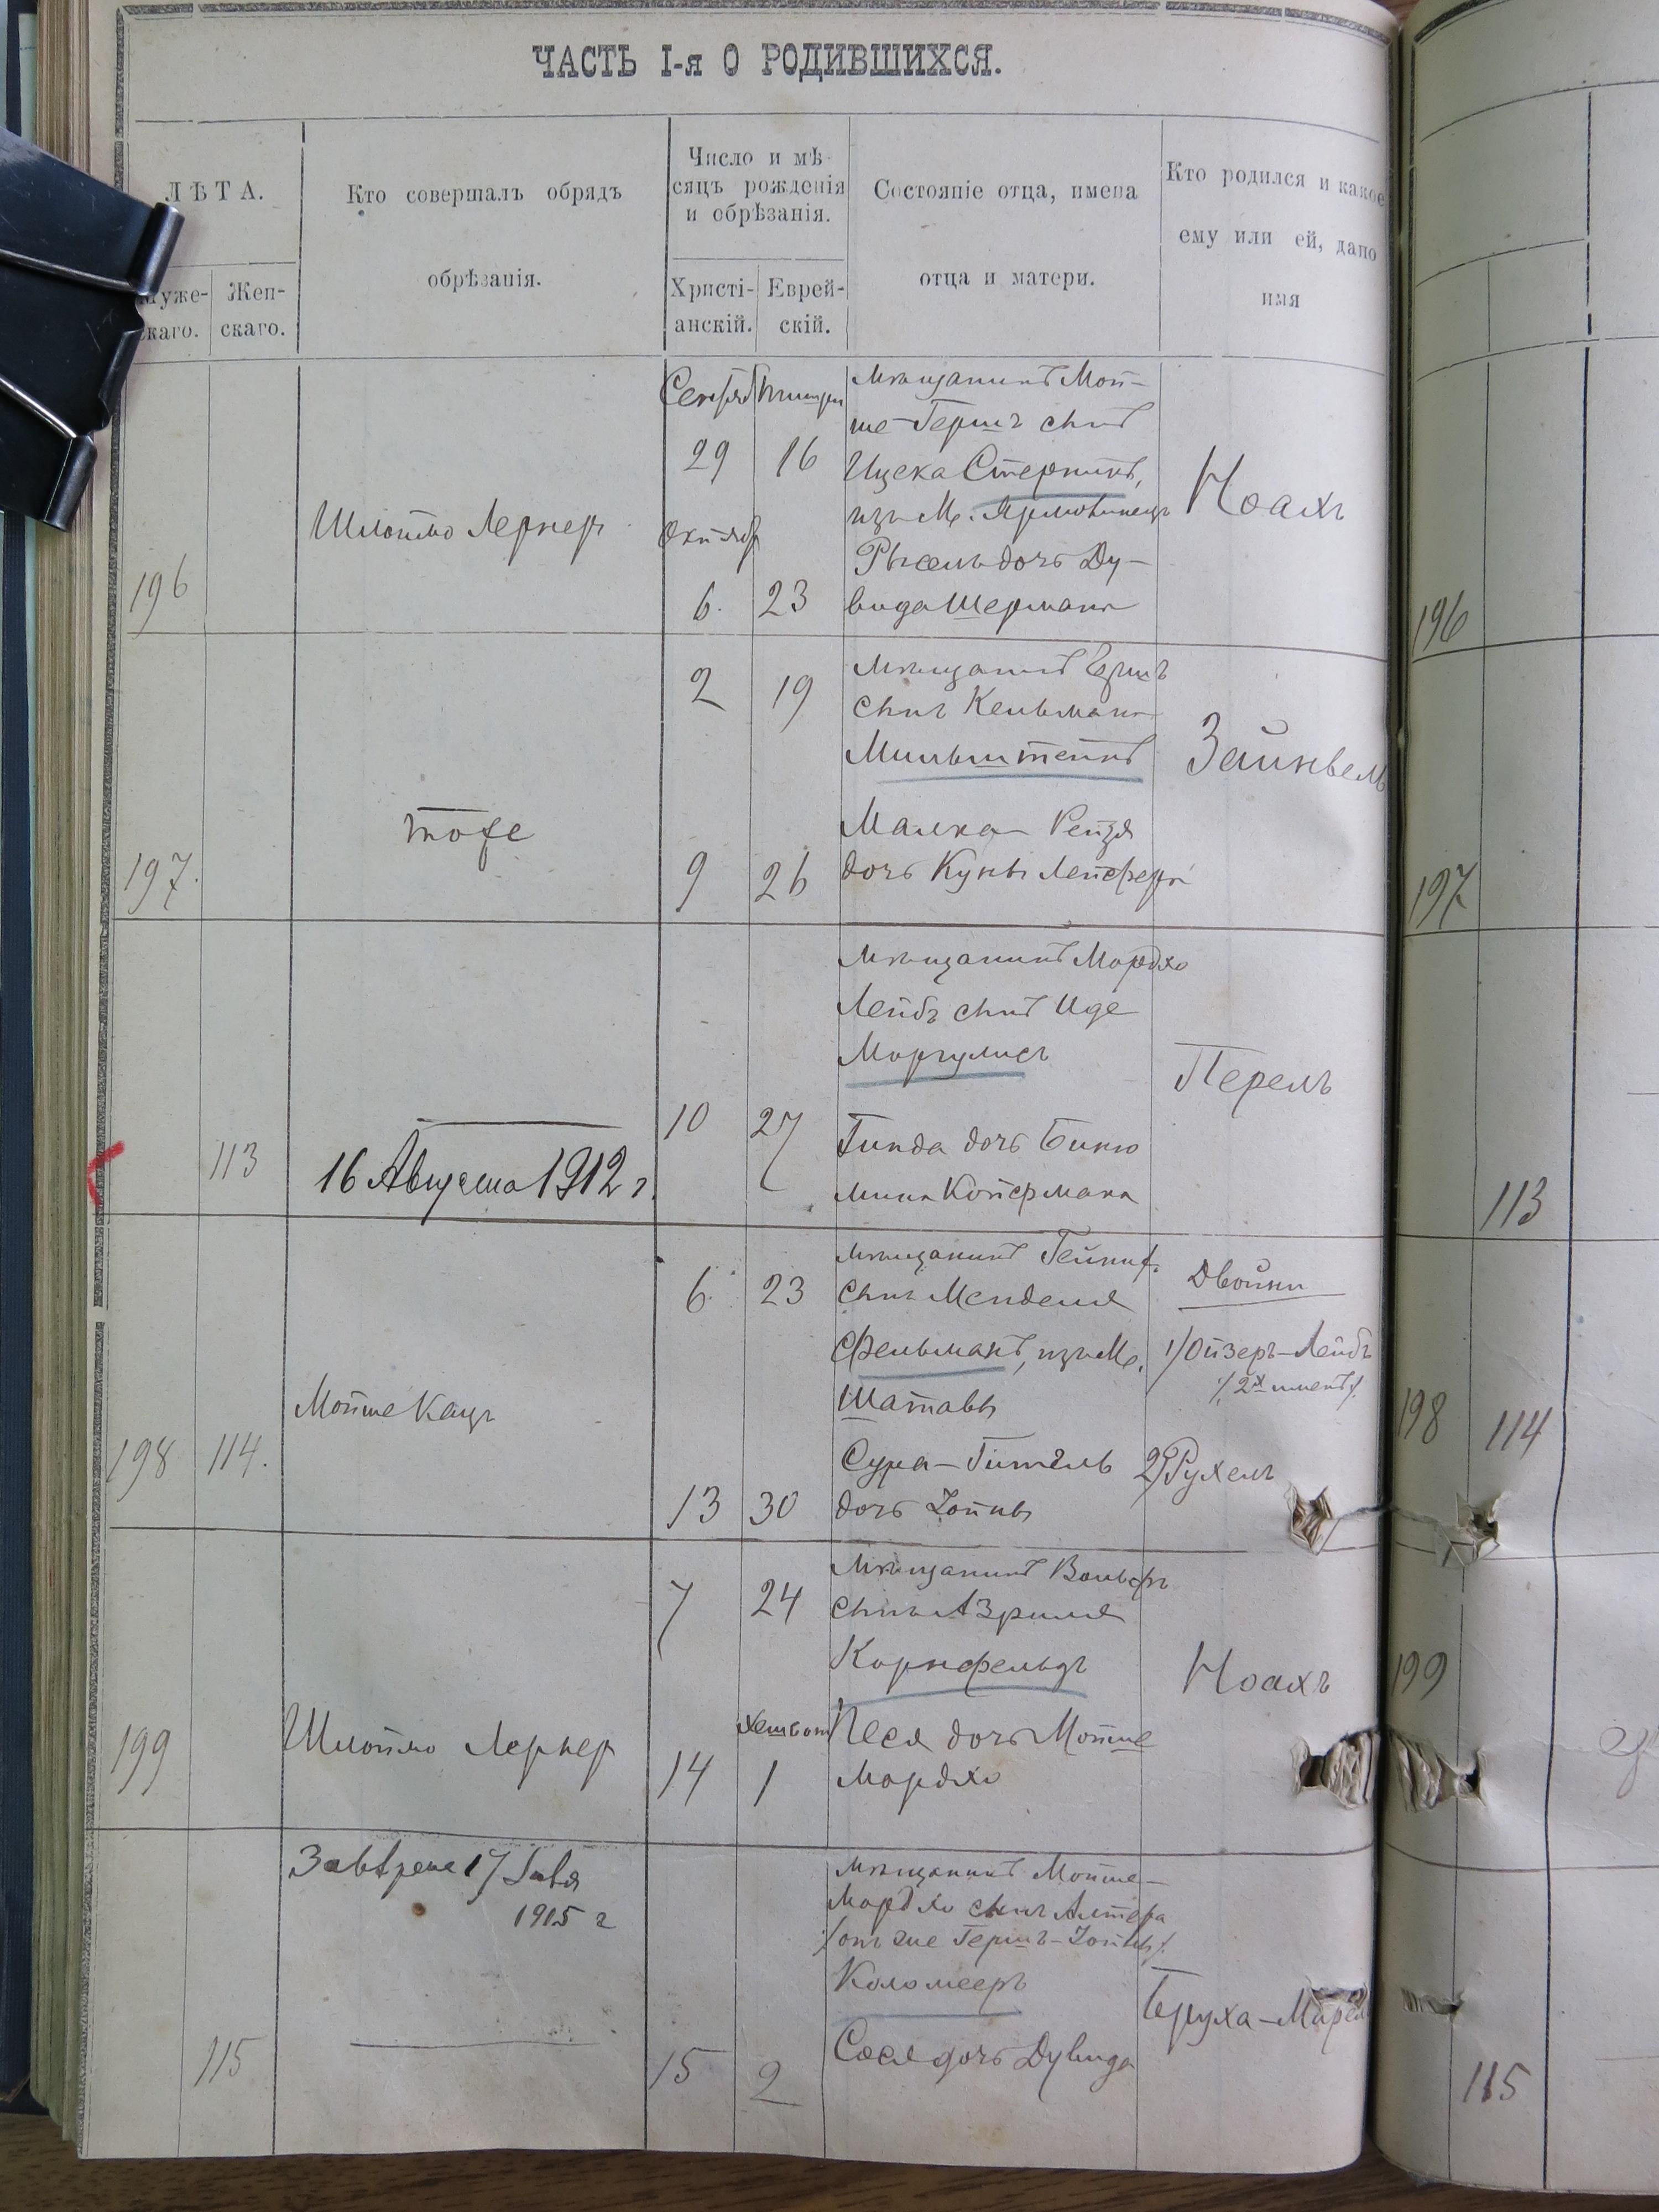 ЧАСТЬ I-я О РОДИВШИХСЯ.
ЛѢТА.
Муже-
скаго.
Жен-
скаго.
Кто совершалъ обрядъ
обрѣзанія.
Число и мѣ-
сяцъ рожденія
и обрѣзанія.
Христі-
анскій.
Еврей-
скій.
Состояніе отца, имена
отца и матери.
Кто родился и какое
ему или ей, дано
имя
196
Шлоймо Лернеръ
Сентяб
29 16
Октябр
6. 23
мѣщанинъ Мой-
ше-Гершъ сынъ
Ицека Стернинъ,
изъ М. Ярмолинецъ
Рысель дочь Ду-
вида Шермана
Ноахъ
196
197.
тоже
2 19
9 26
мѣщанинъ Гершъ
сынъ Кельмана
Мильштейнъ
Малка-Рейзя
дочь Куны
Зайнвель
197
113
16 Августа 1912 г.
10 27
мѣщанинъ Мордхо
Лейбъ сынъ Иде
Моргулисъ
Гинда дочь Биню
мина Койфмана
Перель
113
198 114.
Мойше Кацъ
6. 23
13 30
мѣщанинъ
сынъ Менделя
Фельманъ, изъ М.
Шатавы
Сура-Гитель
дочь Іойны
Двойни
1/ Ойзеръ-Лейбъ
/2х именъ/.
2/ Рухель
198 114
199
Шлоймо Лернер
7 24
хешвон
14 1
мѣщанинъ Вольфъ
сынъ Азриля
Корнфельдъ
Песя дочь Мойше
Мордхо
Ноахъ
199
115
17 Іюля
1915 г
15 2
мѣщанинъ Мойше-
Мордхо сынъ Алтера
/онъ же Гершъ-Іойны/.
Коломееръ
Сося дочь Дувида
Бруха-
115